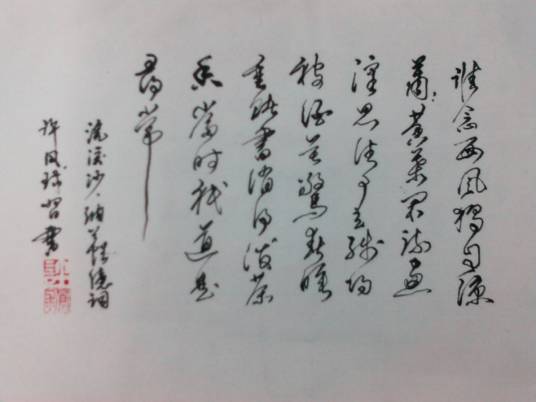 谁念西风独自凉
萧萧黄葉闭疏窗
沉思往事立残阳
被酒莫驚春睡
重赌書消得泼茶
香当时祇道是
尋常
浣溪沙·纳兰性德词
许凤 習書